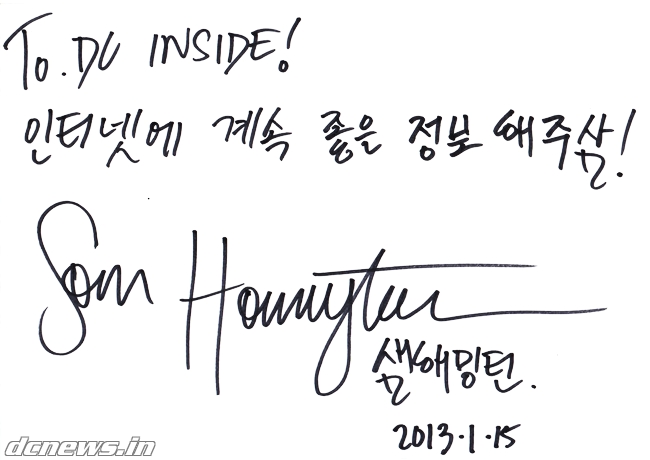 To. DC INSIDE!
인터넷에 계속 좋은 정보 해주삼!
Sam Hammington
샘해밍턴.
2013.1.15
dcnews.in